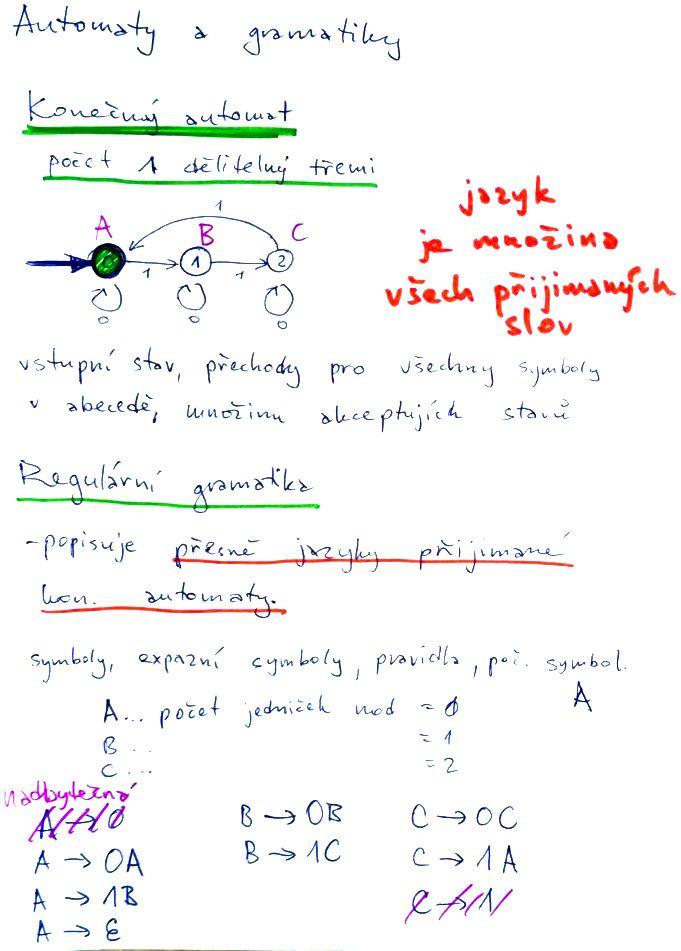 Automaty a gramatiky
Konečný automat
počet 1 dělitelný třemi
1
A B C
0 1 1 1 2
0 0 0
jazyk
je množina
všech přijimaných
slov
vstupní stav, přechody pro všechny symboly
v abecedě, množinu akceptujích stavů
Regulární gramatika
-popisuje přesně jazyky přijimané
kon. automaty.
symboly, expazní symboly, pravidla, poč. symbol.
A
A... počet jedniček mod = 0
B ... = 1
C ... = 2
nadbytečná
A → 0
B → 0B
C → 0C
A → 0A
B → 1C
C → 1A
A → 1B
C → 1
A → ε